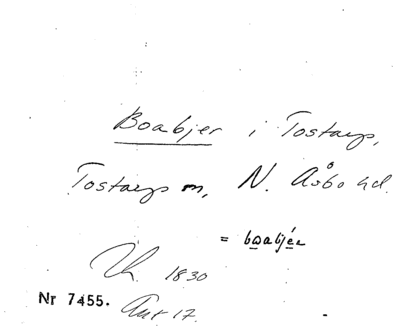 Boabjer i Tostarp,
Tostarp sn, N. Åsbo hd.
= boabjér
1830
Nr 7455. Ant 17.